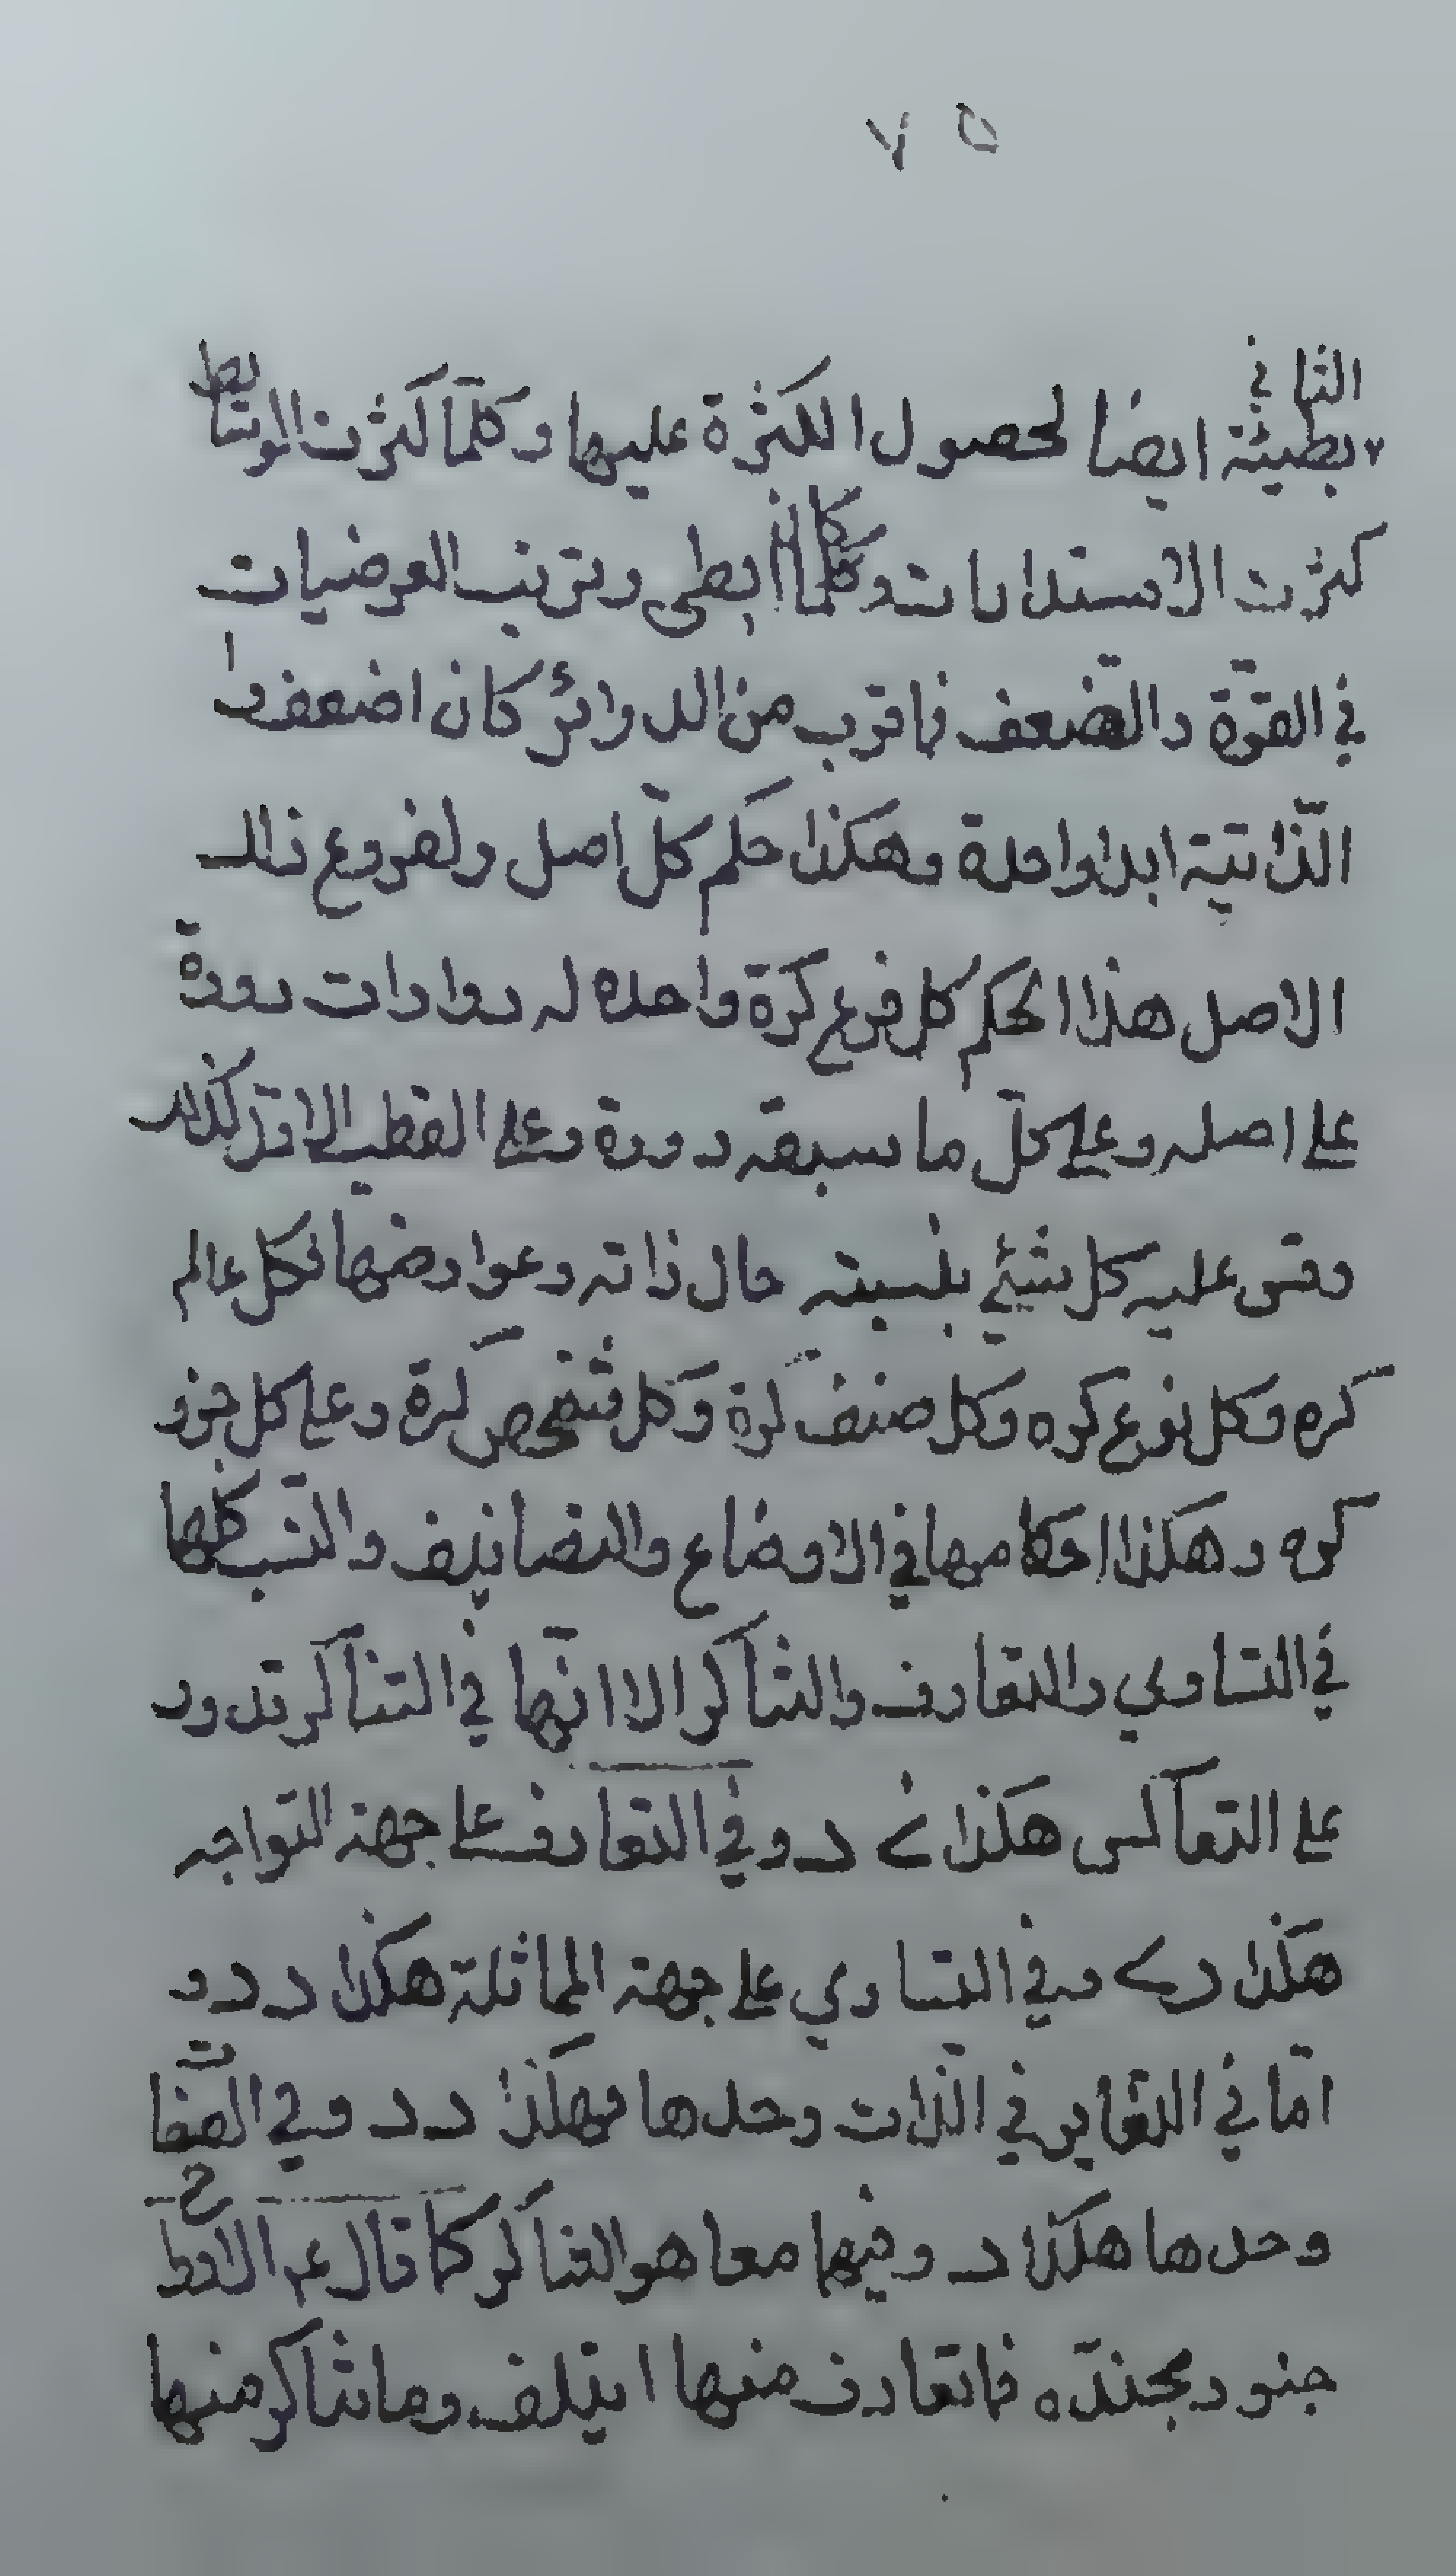 ٧٥
الثاني
بطيئة ايضا لحصول الكثرة عليها وكلما كثرت الوسائط
كثرت الاستدارات وكلما كان ابطى وترتب العرضيات
في القوة والضعف فما قرب من الدوائر كان اضعف وا
الذاتية ابدا واحدة وهكذا حكم كل اصل ولفروع ذلك
الاصل هذا الحكم كل فرع كرة واحده له دوارات دورة
على اصله وعلى كل ما سبقه دورة وعلى القطب الاقرب كذلك
وقس عليه كل شيئ بنسبته حال ذاته وعوارضها فكل عالم
كره وكل نوع كره وكل صنف كرة وكل شخص كرة وعلى كل جزء
كره وهكذا احكامها في الاوضاع والتضانيف والنسب كلها
في التساوي والتعارف والتناكر الا انها في التناكر تدور
على التعاكس هكذا وفي التعارف على جهة التواجه
هكذا وفي التساوي على جهة المماثلة هكذا د د و
اما في التغاير في الذات وحدها فهكذا د د وفي الصفات
وحدها هكذا د وفيهما معا هو التناكر كما قال ع الارواح
جنود مجنده فما تعارف منها ايتلف وما تناكر منها